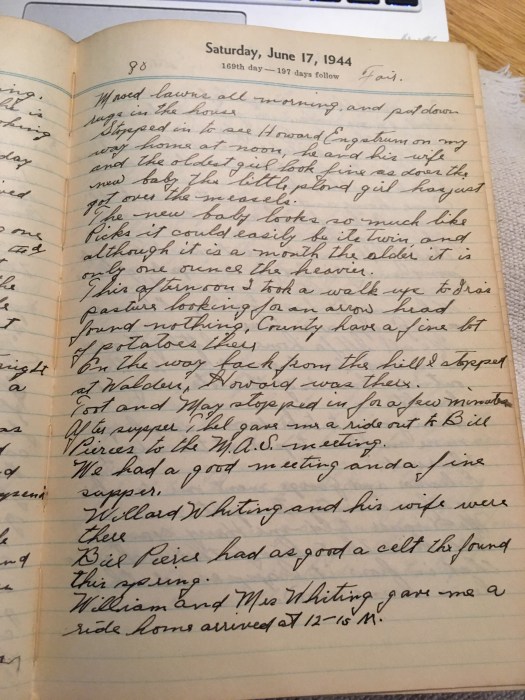 Saturday, June 17, 1944
169th day — 197 days follow
80
Fair.
Mowed lawns all morning, and put down
rugs in the house
Stopped in to see Howard Engstrum on my
way home at noon, he and his wife
and the oldest girl look fine as does the
new baby the little blond girl has just
got over the measels.
The new baby looks so much like
Picks it could easily be its twin, and
although it is a month the older it is
only one ounce the heavier.
This afternoon I took a walk up to Iras
pasture looking for an arrow head
found nothing, County have a fine lot
of potatoes there
On the way back from the hill I stopped
at Walden, Howard was there.
Toot and May stopped in for a few minutes
After supper Thel gave me a ride out to Bill
Pierces to the M.A.S. meeting.
We had a good meeting and a fine
supper.
Willard Whiting and his wife were
there
Bill Pierce had as good a celt the found
this spring.
William and Mrs Whiting gave me a
ride home arrived at 12-15 M.